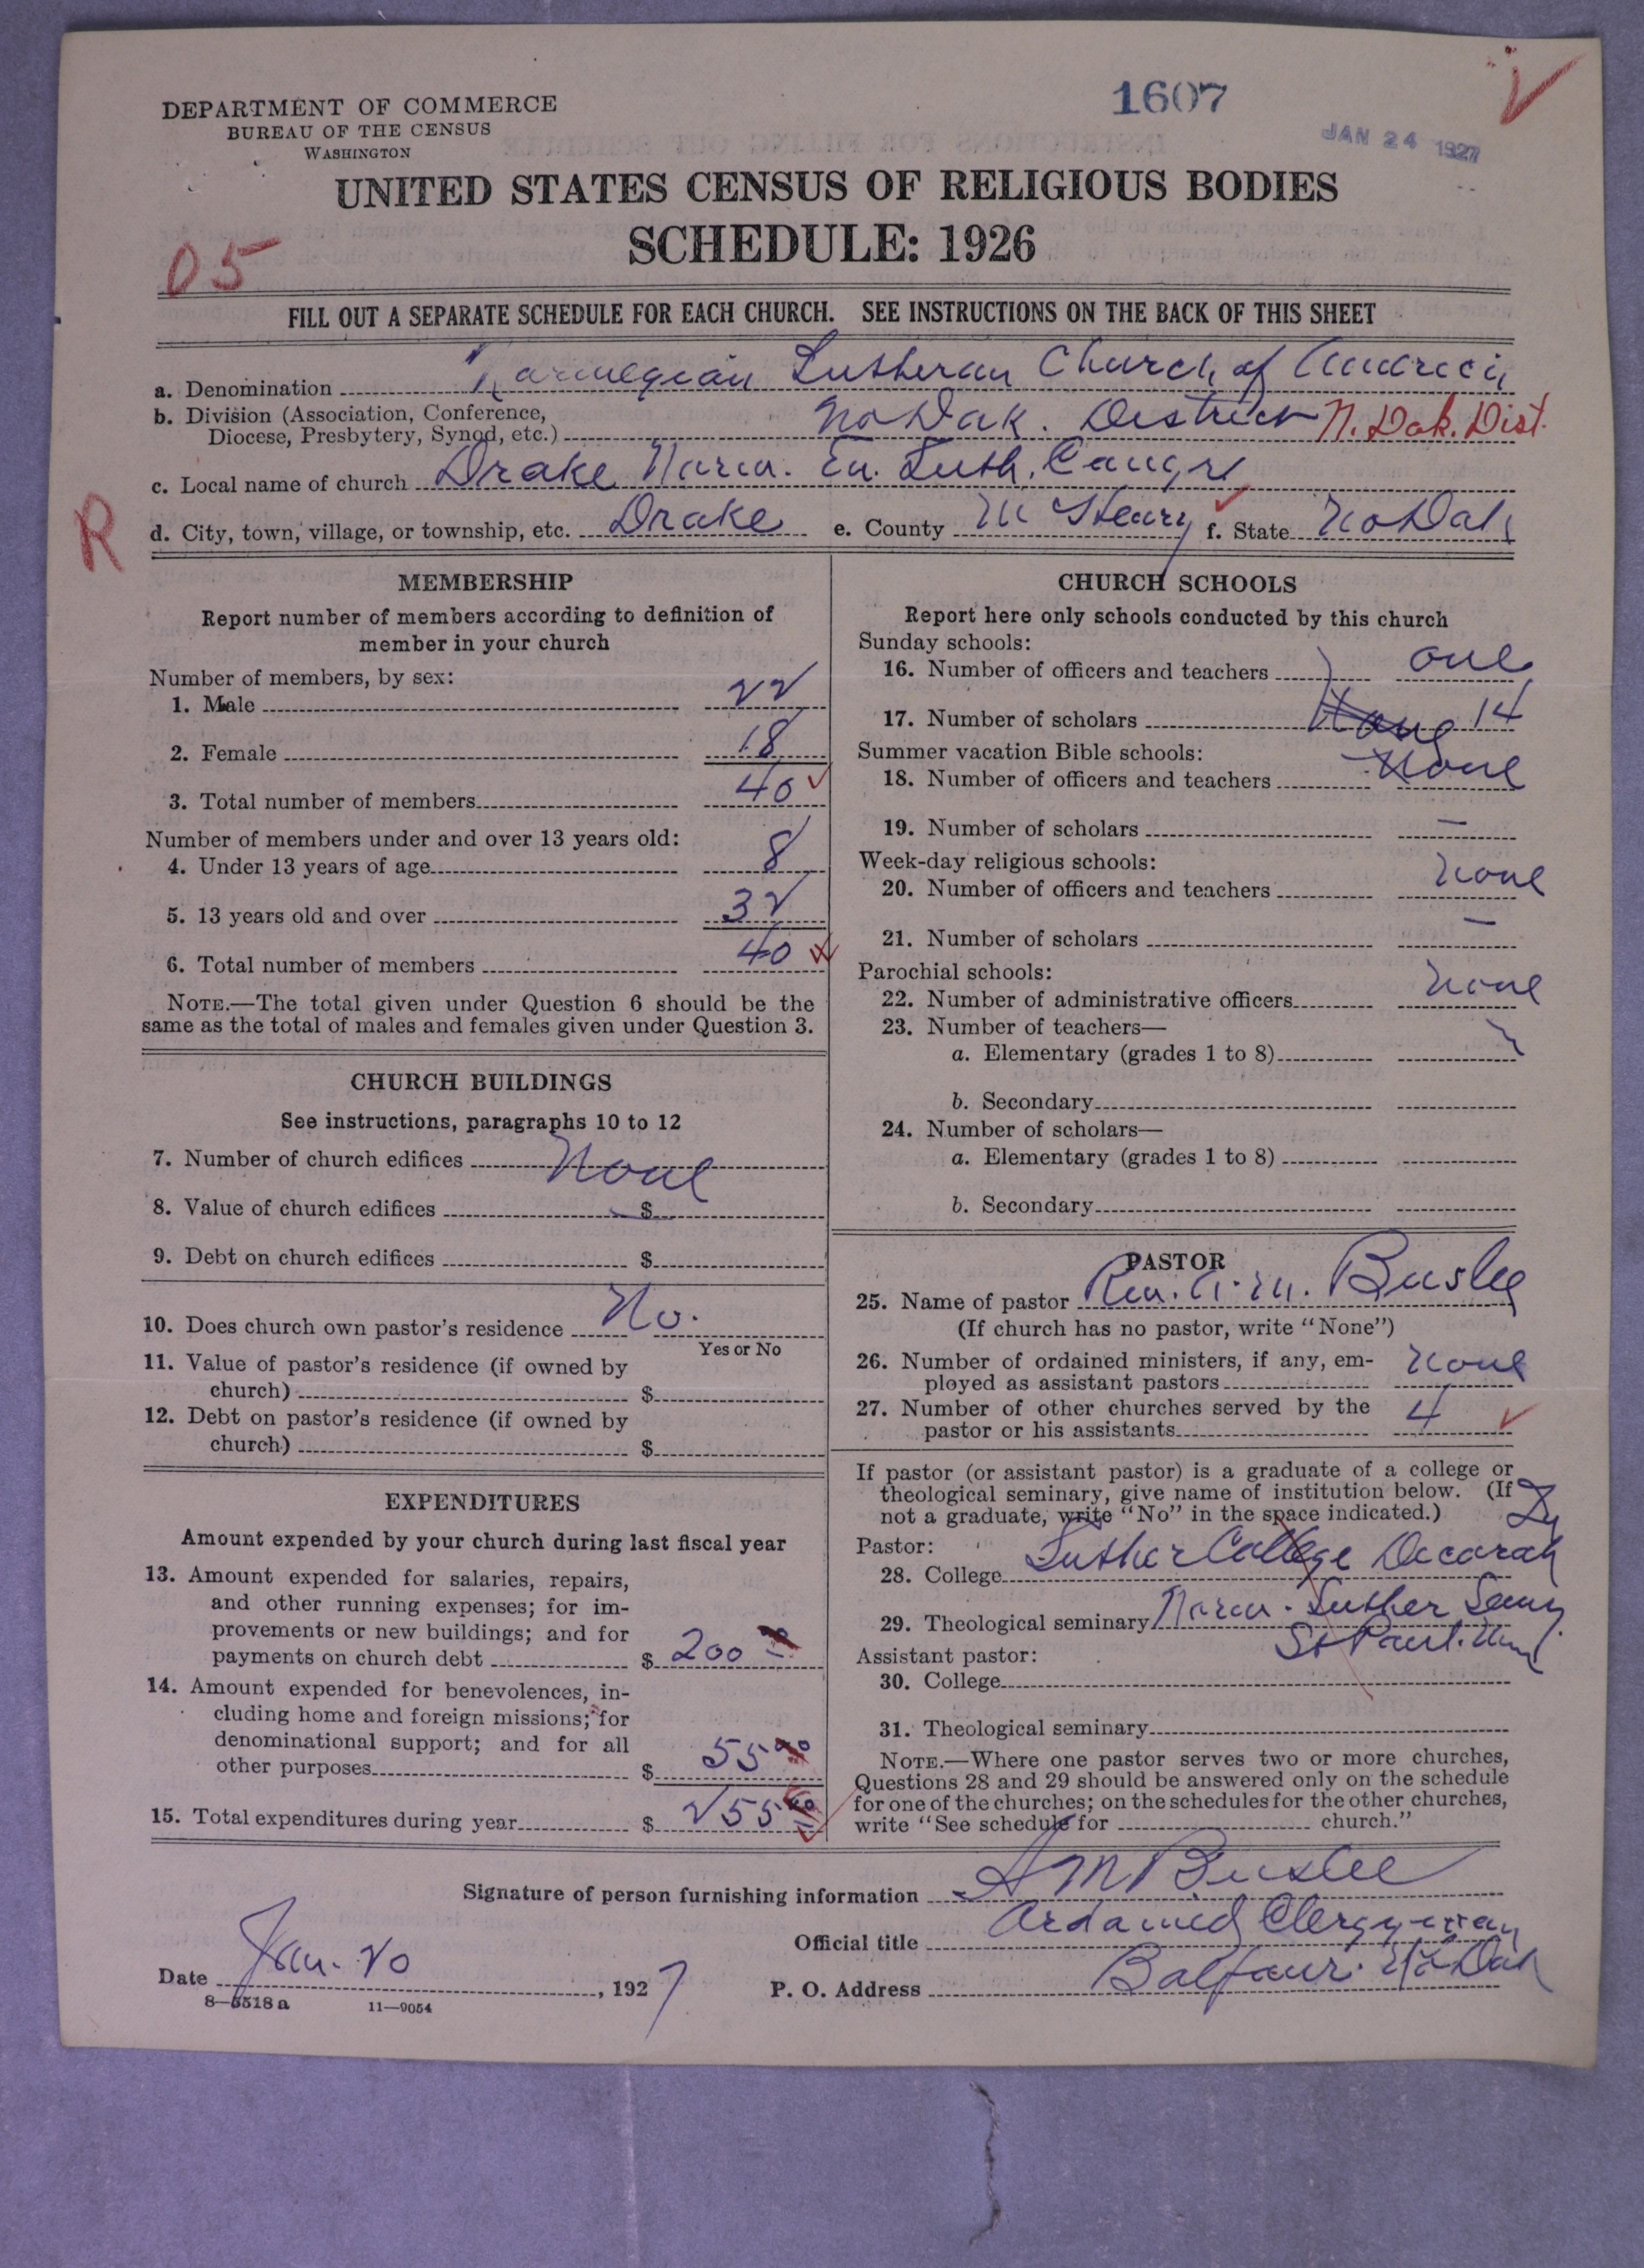 1607
DEPARTMENT OF COMMERCE
BUREAU OF THE CENSUS
WASHINGTON
JAN 24 1927
UNITED STATES CENSUS OF RELIGIOUS BODIES
SCHEDULE: 1926
05
FILL OUT A SEPARATE SCHEDULE FOR EACH CHURCH. SEE INSTRUCTIONS ON THE BACK OF THIS SHEET
a. Denomination Norwegian Lutheran Church of America
b. Division (Association, Conference,
Diocese, Presbytery, Synod, etc.) No Dak. District N. Dak. Dist.
c. Local name of church Drake Norw. Ev. Luth. Congr
R
d. City, town, village, or township, etc. Drake e. County McHenry f. State No Dak
MEMBERSHIP
Report number of members according to definition of
member in your church
Number of members, by sex:
1. Male 22
2. Female 18
3. Total number of members 40
Number of members under and over 13 years old:
4. Under 13 years of age 8
5. 13 years old and over 32
6. Total number of members 40
NOTE.—The total given under Question 6 should be the
same as the total of males and females given under Question 3.
CHURCH BUILDINGS
See instructions, paragraphs 10 to 12
7. Number of church edifices None
8. Value of church edifices $
9. Debt on church edifices $
10. Does church own pastor's residence No.
Yes or No
11. Value of pastor's residence (if owned by
church) $
12. Debt on pastor's residence (if owned by
church) $
EXPENDITURES
Amount expended by your church during last fiscal year
13. Amount expended for salaries, repairs,
and other running expenses; for im-
provements or new buildings; and for
payments on church debt $ 200
14. Amount expended for benevolences, in-
cluding home and foreign missions; for
denominational support; and for all
other purposes $ 55
15. Total expenditures during year $ 255
CHURCH SCHOOLS
Report here only schools conducted by this church
Sunday schools:
16. Number of officers and teachers one
17. Number of scholars 14
Summer vacation Bible schools:
18. Number of officers and teachers None
19. Number of scholars —
Week-day religious schools:
20. Number of officers and teachers None
21. Number of scholars —
Parochial schools:
22. Number of administrative officers None
23. Number of teachers—
a. Elementary (grades 1 to 8)
b. Secondary
24. Number of scholars—
a. Elementary (grades 1 to 8)
b. Secondary
PASTOR
25. Name of pastor Rev. A. M. Buslee
(If church has no pastor, write "None")
26. Number of ordained ministers, if any, em-
ployed as assistant pastors None
27. Number of other churches served by the
pastor or his assistants 4
If pastor (or assistant pastor) is a graduate of a college or
theological seminary, give name of institution below. (If
not a graduate, write "No" in the space indicated.)
Pastor:
28. College Luther College Decorah
29. Theological seminary Norw. Luther Semy
St Paul. Minn.
Assistant pastor:
30. College
31. Theological seminary
NOTE.—Where one pastor serves two or more churches,
Questions 28 and 29 should be answered only on the schedule
for one of the churches; on the schedules for the other churches,
write "See schedule for church."
Signature of person furnishing information A M Buslee
Official title Ordained Clergyman
Date Jan. 20, 1927 P. O. Address Balfour. No Dak
8—5518 a 11—9054